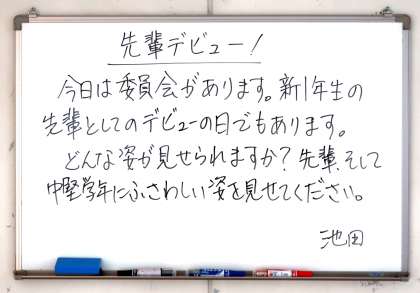 先輩デビュー！
今日は委員会があります。新1年生の
先輩としてのデビューの日でもあります。
どんな姿が見せられますか？先輩、そして
中堅学年にふさわしい姿を見せてください。
池田